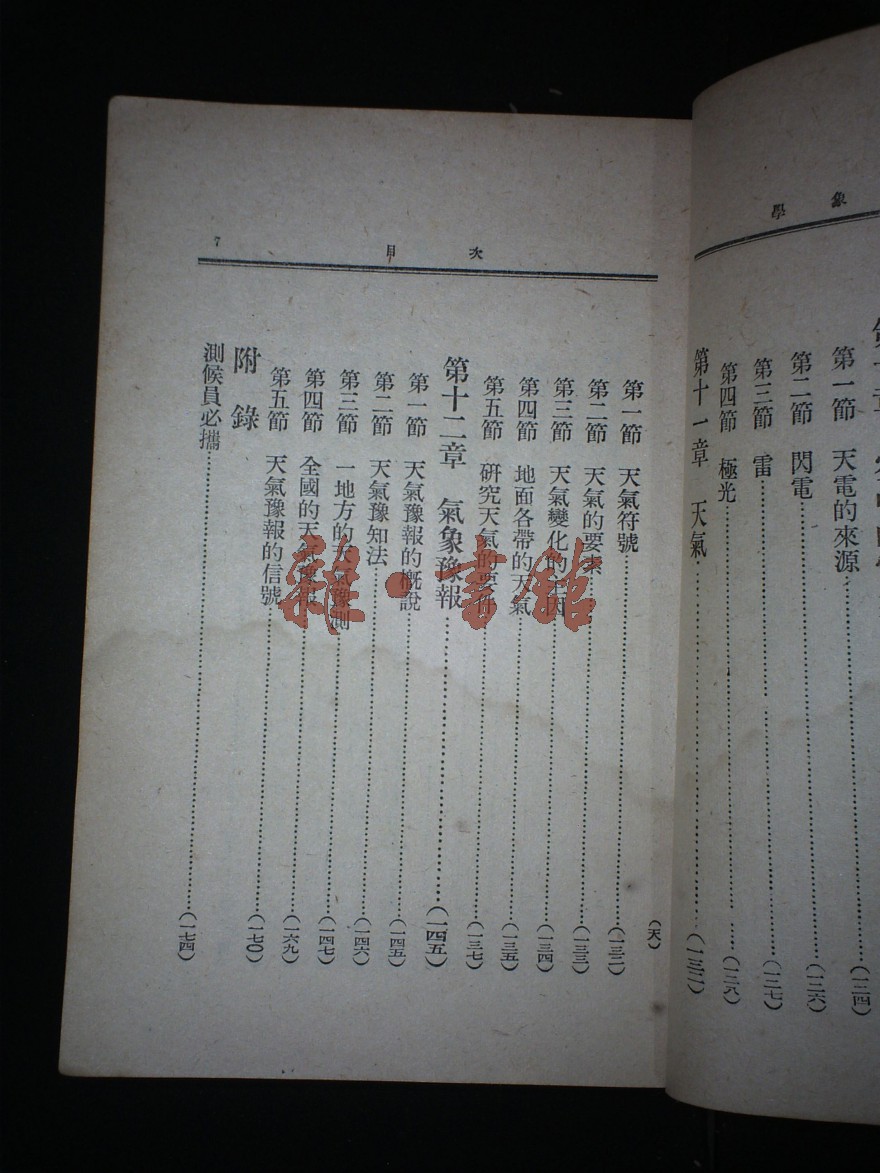 象學
第一節 天電的來源……(一二四)
第二節 閃電……(一二六)
第三節 雷……(一二七)
第四節 極光……(一二八)
第十一章 天氣……(一三二)
目次
7
(天)
第一節 天氣符號……(一三二)
第二節 天氣的要素……(一三三)
第三節 天氣變化的主因……(一三四)
第四節 地面各帶的天氣……(一三五)
第五節 研究天氣的要件……(一三七)
第十二章 氣象豫報……(一四五)
第一節 天氣豫報的概說……(一四五)
第二節 天氣豫知法……(一四六)
第三節 一地方的天氣豫測……(一四七)
第四節 全國的天氣豫報……(一六九)
第五節 天氣豫報的信號……(一七〇)
附錄
測候員必攜……(一七四)
雜·書館